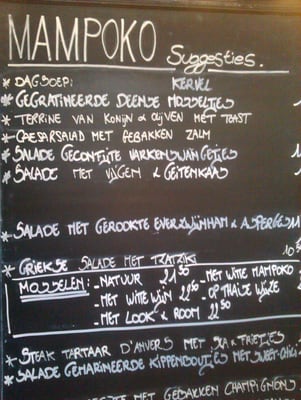 MAMPOKO Suggesties.
* DAGSOEP: KERVEL
* GEGRATINEERDE DEENSE MOSSELTJES
* TERRINE VAN KONIJN & OLIJVEN MET TOAST
* CAESARSALAD MET GEBAKKEN ZALM
* SALADE GECONFIJTE VARKENSWANGETJES 1
* SALADE MET VIJGEN & GEITENKAAS 1
* SALADE MET GEROOKTE EVERZWIJNHAM & ASPERGES 11
* GRIEKSE SALADE MET TZATZIKI 10
MOSSELEN: - NATUUR 21⁵⁰ - MET WITTE MAMPOKO
- MET WITTE WIJN 22⁵⁰ - OP THAISE WIJZE
- MET LOOK & ROOM 22⁵⁰
* STEAK TARTAAR D'ANVERS MET SLA & FRIETJES
* SALADE GEMARINEERDE KIPPENBOUTJES MET SWEET-CHILI
MET GEBAKKEN CHAMPIGNONS